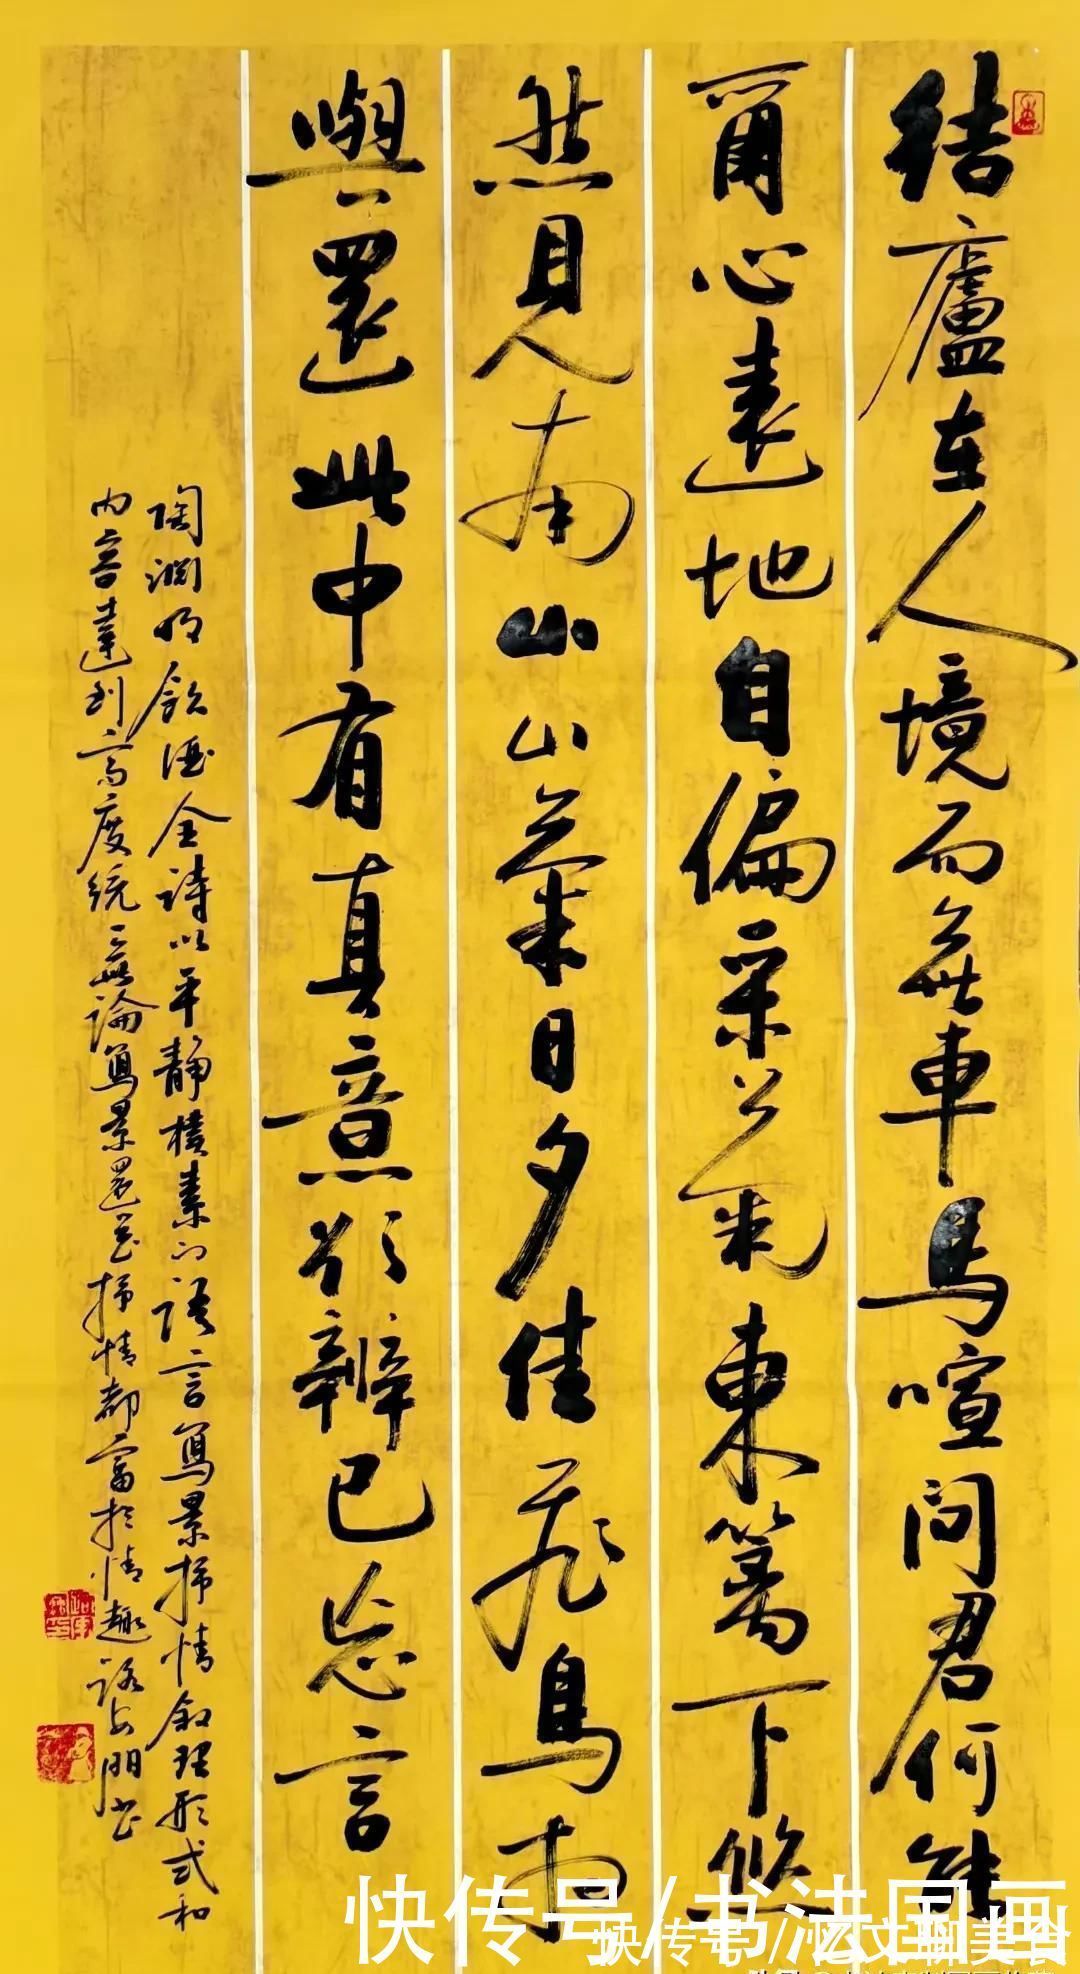 結廬在人境而無車馬喧問君何能
爾心遠地自偏采菊東篱下悠
然見南山山氣日夕佳飛鳥相
與還此中有真意欲辨已忘言
陶渊明飲酒全詩以平静樸素的語言寫景抒情叙理形式和
内容達到高度統一無論寫景還是抒情都富於情趣
快传号/书法国画
快传号/